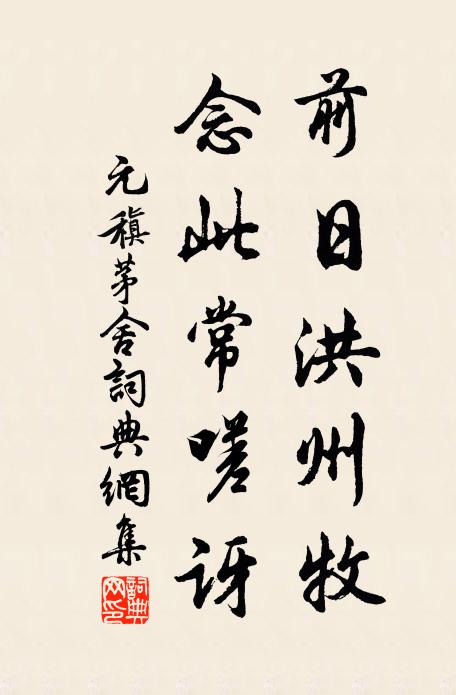 前日洪州牧
念此常嗟訝
元稹茅舍詞典網集
詞典網印